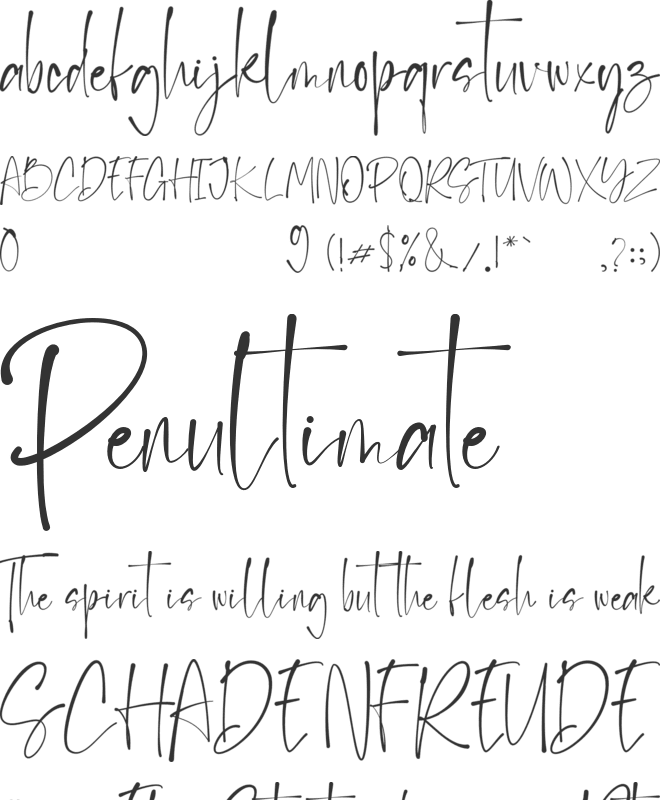 abcdefghijklmnopqrstuvwxyz
ABCDEFGHIJKLMNOPQRSTUVWXYZ
0 9 (!#$%&/.|*` ,?:;)
Penultimate
The spirit is willing but the flesh is weak
SCHADENFREUDE